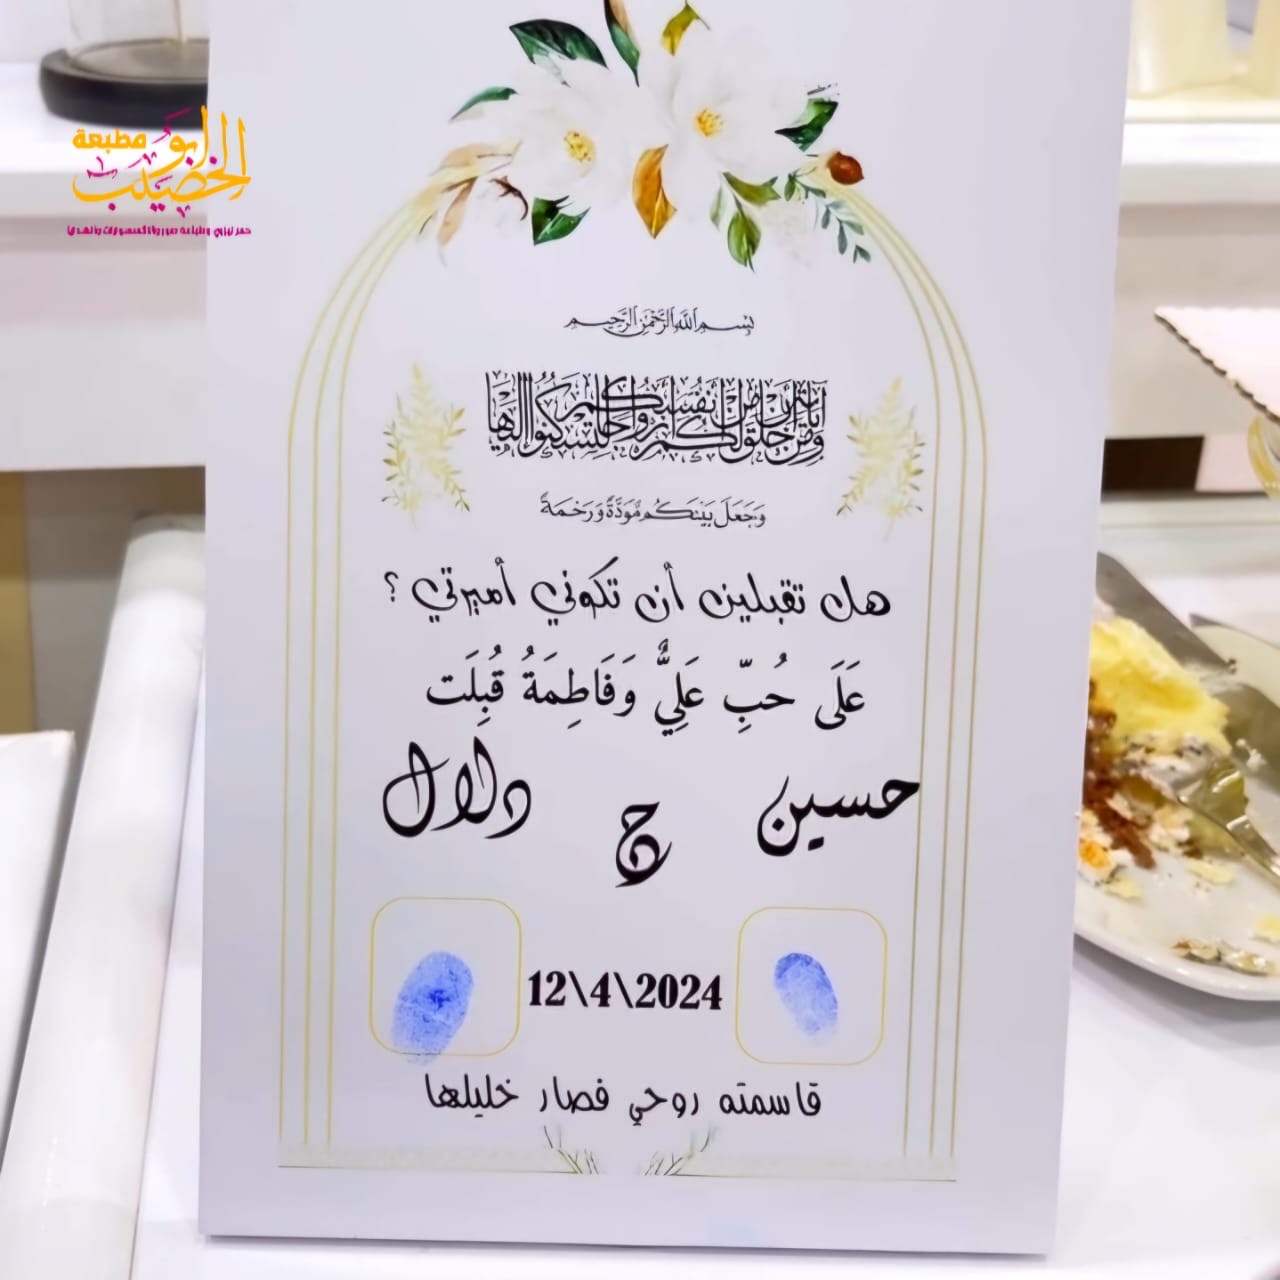 مطبعة
ابو الخصيب
بِسْمِ اللَّهِ الرَّحْمَنِ الرَّحِيمِ
وَمِنْ آيَاتِهِ أَنْ خَلَقَ لَكُم مِّنْ أَنفُسِكُمْ أَزْوَاجًا لِّتَسْكُنُوا إِلَيْهَا
وَجَعَلَ بَيْنَكُم مَّوَدَّةً وَرَحْمَةً
هل تقبلين أن تكوني أميرتي ؟
عَلَى حُبِّ عَلِيٍّ وَفَاطِمَةُ قُبِلَت
حسين ج دلال
12\4\2024
قاسمته روحي فصار خليلها